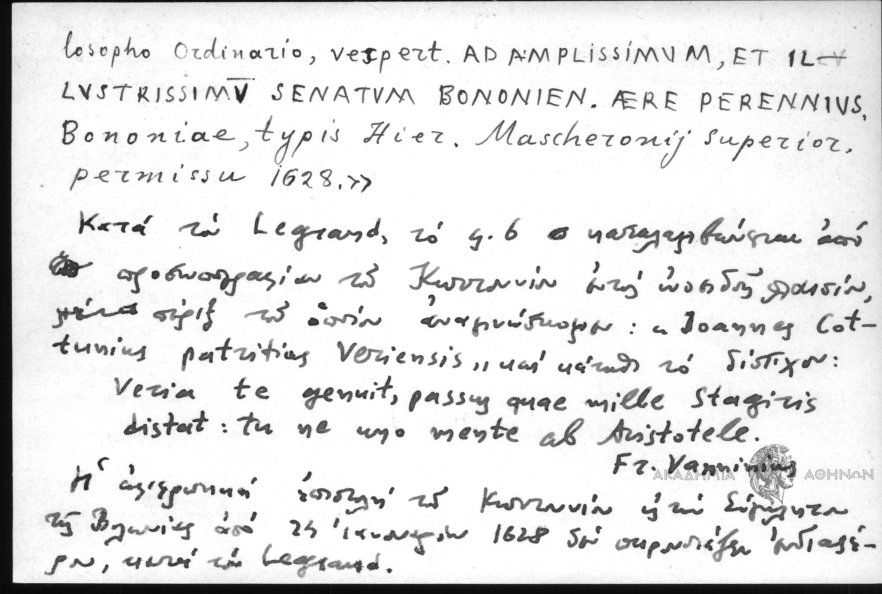 losopho Ordinario, vespert. AD AMPLISSIMVM, ET IL
LVSTRISSIMV̅ SENATVM BONONIEN. ÆRE PERENNIVS,
Bononiae, typis Hier. Mascheronij superior.
permissu 1628.»
Κατά τόν Legrand, τό φ. 6 καταλαμβάνεται ἀπό
προσωπογραφίαν τοῦ Κωττουνίου ἐντός ὠοειδοῦς πλαισίου,
πέριξ τοῦ ὁποίου ἀναγινώσκομεν: «Joannes Cot-
tunius patritius Veriensis» καί κάτωθι τό δίστιχον:
Veria te genuit, passus quae mille Stagiris
distat: tu ne uno mente ab Aristotele.
Fr. Vanninius
ΑΚΑΔΗΜΙΑ ΑΘΗΝΩΝ
Ἡ ἀφιερωτική ἐπιστολή τοῦ Κωττουνίου εἰς τήν Σύγκλητον
τῆς Βολωνίας ἀπό 24 Ἰανουαρίου 1628 δέν παρουσιάζει ἐνδιαφέ-
ρον, κατά τόν Legrand.